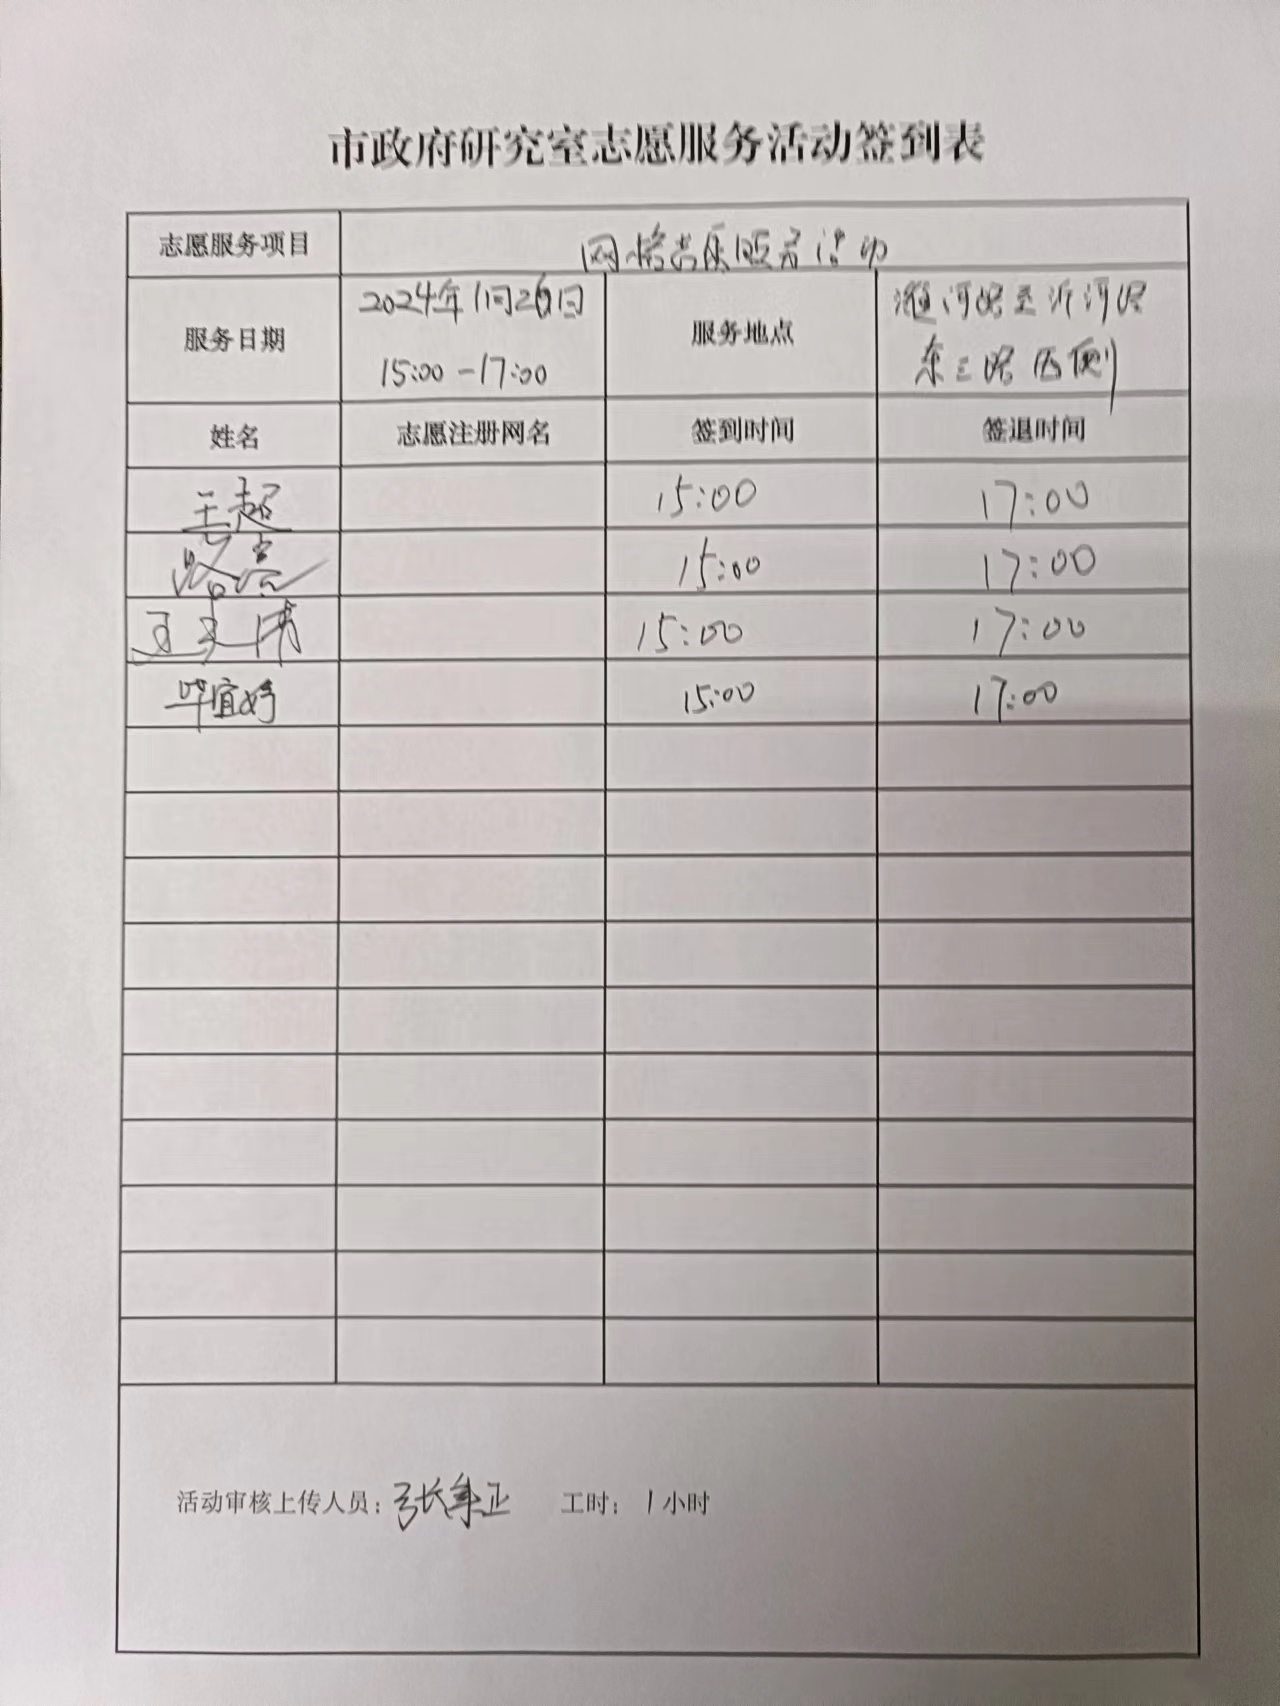 市政府研究室志愿服务活动签到表
志愿服务项目 网格志愿服务活动
服务日期 2024年1月26日 15:00-17:00 服务地点 淮河路至沂河路 东三路西侧
姓名 志愿注册网名 签到时间 签退时间
王超 15:00 17:00
15:00 17:00
15:00 17:00
毕宜婷 15:00 17:00
活动审核上传人员: 工时: 1小时